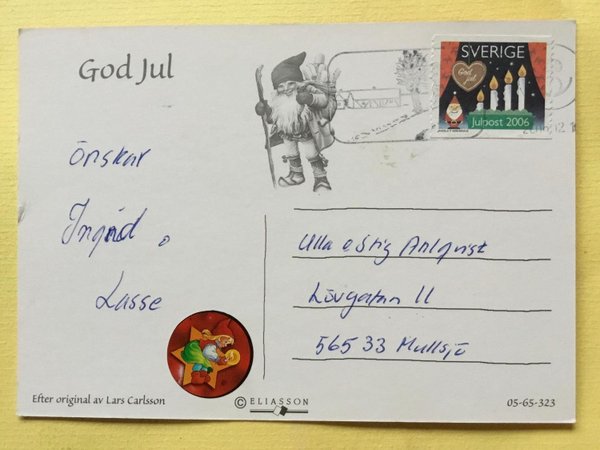 God Jul
SVERIGE
God jul
Julpost 2006
önskar
Ingrid o
Lasse
Ulla o Stig Ahlqvist
Lövgatan 11
565 33 Mullsjö
Efter original av Lars Carlsson
© ELIASSON
05-65-323